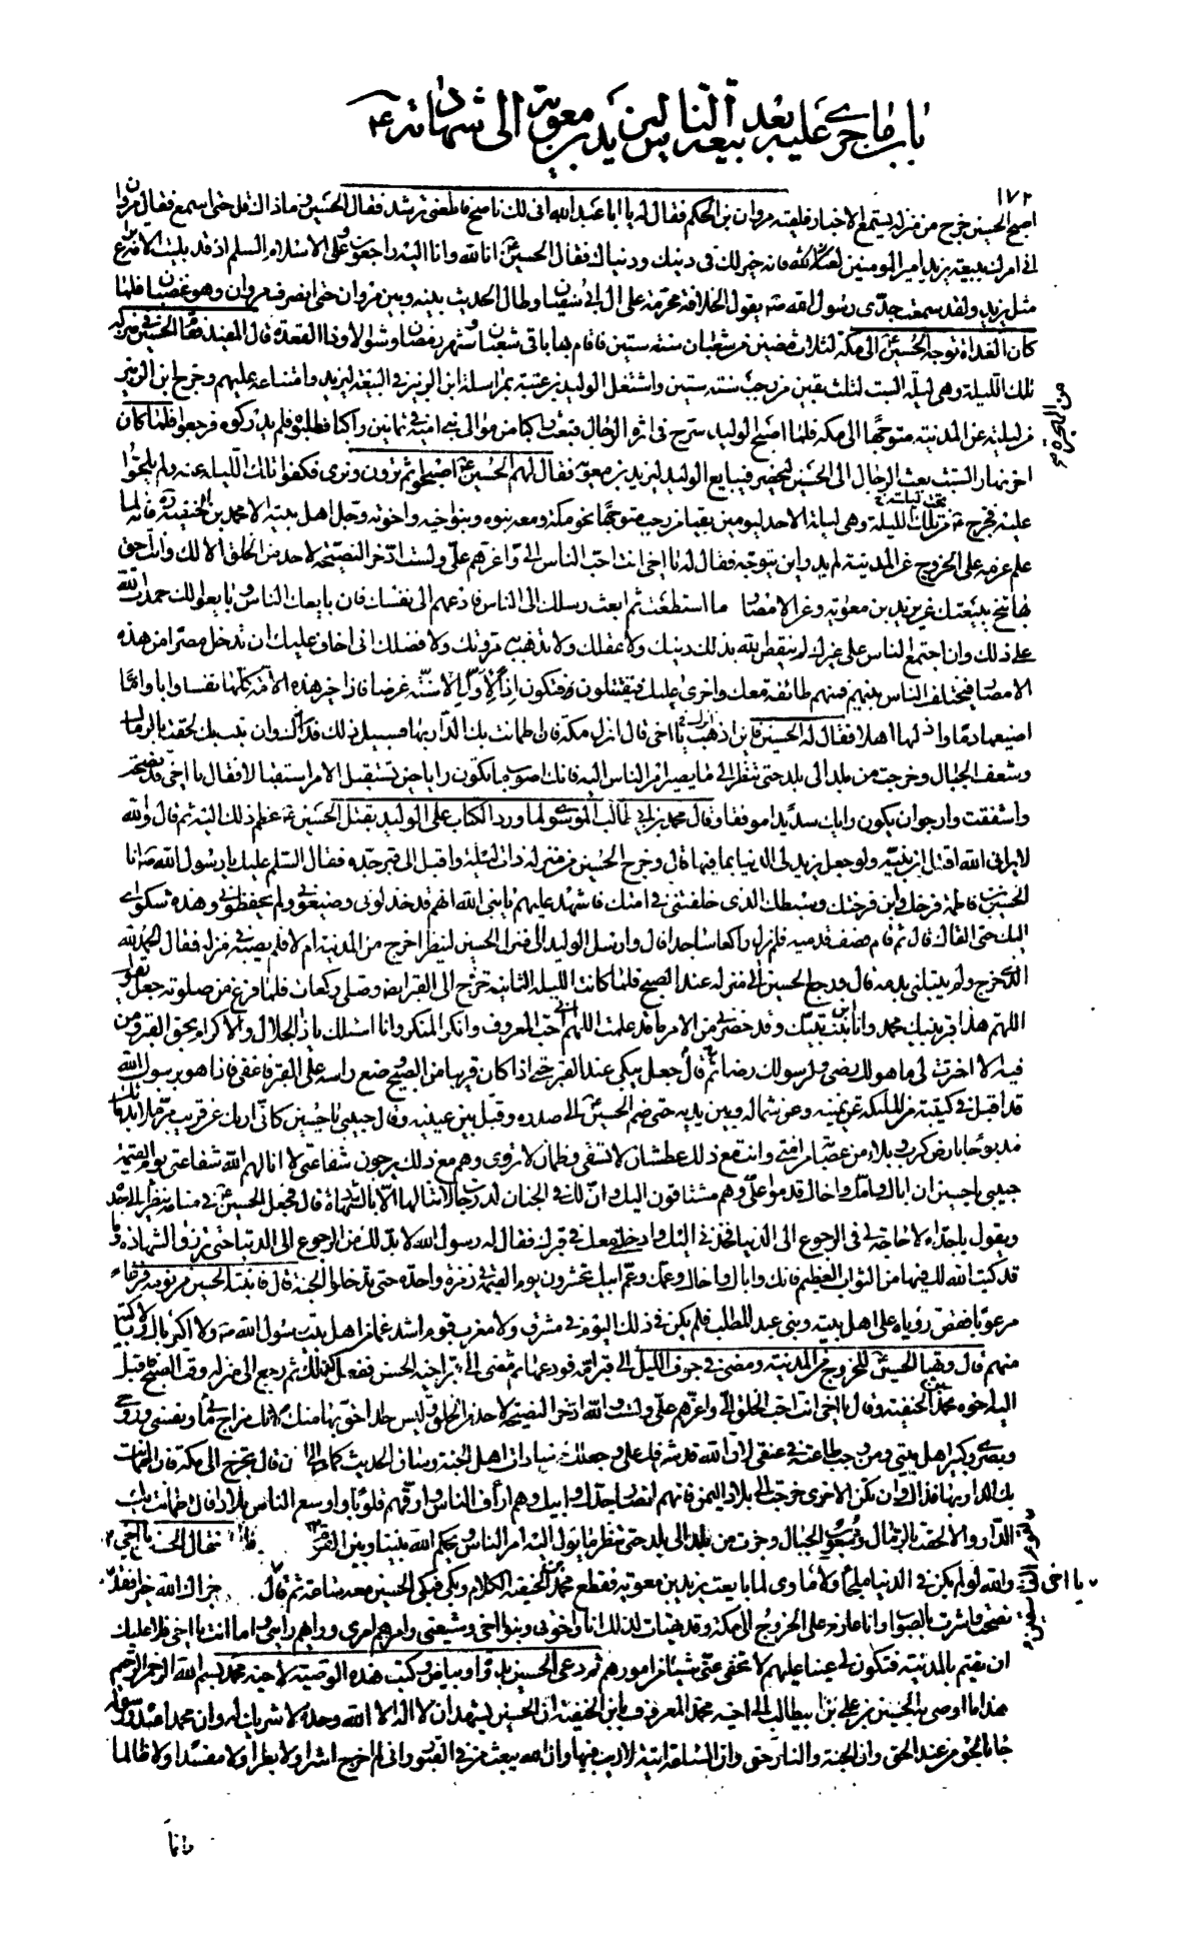 باب ما جرى عليه بعد بيعة الناس ليزيد بن معوية الى شهادته
١٧٢
اصبح الحسين خرج من منزله يستمع الاخبار فلقيه مروان بن الحكم فقال له يا ابا عبد الله انى لك ناصح فاطعنى ترشد فقال الحسين و ما ذاك قل حتى اسمع فقال مروان
انى امرك ببيعة يزيد امير المومنين فانه خير لك فى دينك و دنياك فقال الحسين انا لله و انا اليه راجعون و على الاسلام السلم اذ قد بليت الامة براع
مثل يزيد و لقد سمعت جدى رسول الله يقول الخلافة محرمة على ال ابى سفيان و طال الحديث بينه و بين مروان حتى انصرف مروان و هو غضبان فلما
كان الغداة توجه الحسين الى مكة لثلاث مضين من شعبان سنة ستين فاقام بها باقى شعبان و شهر رمضان و شوالا و ذا القعدة قال المفيد فقام الحسين فى منزله
تلك الليلة و هى ليلة السبت لثلث بقين من رجب سنة ستين و اشتغل الوليد بن عتبة بمراسلة ابن الزبير فى البيعة ليزيد و امتناعه عليهم و خرج ابن الزبير
من ليلته عن المدينة متوجها الى مكة فلما اصبح الوليد سرح فى اثره الرجال فبعث راكبا من موالى بنى امية فى ثمانين راكبا فطلبوه فلم يدركوه فرجعوا فلما كان
من الهجرة
اخر نهار السبت بعث الرجال الى الحسين ليحضر فيبايع الوليد ليزيد بن معوية فقال لهم الحسين اصبحوا ثم ترون و نرى فكفوا تلك الليلة عنه و لم يلحوا
عليه فخرج من تحت ليلته و هى ليلة الاحد ليومين بقيا من رجب متوجها نحو مكة و معه بنوه و بنو اخيه و اخوته و جل اهل بيته الا محمد بن الحنفية فانه لما
علم عزمه على الخروج عن المدينة لم يدر اين يتوجه فقال له يا اخى انت احب الناس الى و اعزهم على و لست ادخر النصيحة لاحد من الخلق الا لك و انت احق
بها تنح ببيعتك عن يزيد بن معاوية و عن الامصار ما استطعت ثم ابعث رسلك الى الناس فادعهم الى نفسك فان بايعك الناس و بايعوا لك حمدت الله
على ذلك و ان اجتمع الناس على غيرك لم ينقص الله بذلك دينك و لا عقلك و لا تذهب به مروتك و لا فضلك انى اخاف عليك ان تدخل مصرا من هذه
الامصار فيختلف الناس بينهم فمنهم طائفة معك و اخرى عليك فيقتتلون فتكون اذا لاول الاسنة غرضا فاذا خير هذه الامة كلها نفسا و ابا و اما
اضيعها دما و اذلها اهلا فقال له الحسين فاين اذهب يا اخى قال انزل مكة فان اطمانت بك الدار بها فسبيل ذلك و ان نبت بك لحقت بالرمال
و شعف الجبال و خرجت من بلد الى بلد حتى تنظر الى ما يصير امر الناس اليه فانك اصوب ما تكون رايا حين تستقبل الامر استقبالا فقال يا اخى قد نصحت
و اشفقت و ارجو ان يكون رايك سديدا موفقا و قال محمد بن ابى طالب الموسوى لما ورد الكتاب على الوليد بقتل الحسين عظم ذلك عليه ثم قال و الله
لا يرانى الله اقتل ابن نبيه و لو جعل يزيد لى الدنيا بما فيها قال و خرج الحسين من منزله ذات ليلة و اقبل الى قبر جده فقال السلم عليك يا رسول الله انا
الحسين بن فاطمة فرخك و ابن فرختك و سبطك الذى خلفتنى فى امتك فاشهد عليهم يا نبى الله انهم قد خذلونى و ضيعونى و لم يحفظونى و هذه شكواى
اليك حتى القاك قال ثم قام فصف قدميه فلم يزل راكعا ساجدا قال و ارسل الوليد الى منزل الحسين لينظر اخرج من المدينة ام لا فلم يصبه فى منزله فقال الحمد لله
الذى خرج و لم يبتلنى بدمه قال و رجع الحسين الى منزله عند الصبح فلما كانت الليلة الثانية خرج الى القبر ايضا و صلى ركعات فلما فرغ من صلوته جعل يقول
اللهم هذا قبر نبيك محمد و انا ابن بنت نبيك و قد حضرنى من الامر ما قد علمت اللهم انى احب المعروف و انكر المنكر و انا اسئلك يا ذا الجلال و الاكرام بحق القبر و من
فيه الا اخترت لى ما هو لك رضى و لرسولك رضا ثم قال جعل يبكى عند القبر حتى اذا كان قريبا من الصبح وضع راسه على القبر فاغفى فاذا هو برسول الله
قد اقبل فى كتيبة من الملئكة عن يمينه و عن شماله و بين يديه حتى ضم الحسين الى صدره و قبل بين عينيه و قال حبيبى يا حسين كانى اراك عن قريب مرملا بدمائك
مذبوحا بارض كرب و بلاء من عصابة من امتى و انت مع ذلك عطشان لا تسقى و ظمان لا تروى و هم مع ذلك يرجون شفاعتى لا انالهم الله شفاعتى يوم القيمة
حبيبى يا حسين ان اباك و امك و اخاك قدموا على و هم مشتاقون اليك و ان لك فى الجنان لدرجات لا تنالها الا بالشهادة قال فجعل الحسين فى منامه ينظر الى جده
و يقول يا جداه لا حاجة لى فى الرجوع الى الدنيا فخذنى اليك و ادخلنى معك فى قبرك فقال له رسول الله لا بد لك من الرجوع الى الدنيا حتى ترزق الشهادة و ما
قد كتب الله لك فيها من الثواب العظيم فانك و اباك و اخاك و عمك و عم ابيك تحشرون يوم القيمة فى زمرة واحدة حتى تدخلوا الجنة قال فانتبه الحسين من نومه فزعا
مرعوبا فقص رؤياه على اهل بيته و بنى عبد المطلب فلم يكن فى ذلك اليوم فى مشرق و لا مغرب قوم اشد غما من اهل بيت رسول الله و لا اكثر باك و لا باكية
منهم قال و تهيا الحسين للخروج من المدينة و مضى فى جوف الليل الى قبر امه فودعها ثم مضى الى قبر اخيه الحسن ففعل كذلك ثم رجع الى منزله وقت الصبح فاقبل
اليه اخوه محمد بن الحنفية و قال يا اخى انت احب الخلق الى و اعزهم على و لست و الله ادخر النصيحة لاحد من الخلق و ليس احد احق بها منك لانك مزاج مائى و نفسى و روحى
و بصرى و كبير اهل بيتى و من وجب طاعته فى عنقى لان الله قد شرفك على و جعلك من سادات اهل الجنة و ساق الحديث كما مر الى ان قال تخرج الى مكة فان اطمانت
بك الدار بها فذاك و ان تكن الاخرى خرجت الى بلاد اليمن فانهم انصار جدك و ابيك و هم اراف الناس و ارقهم قلوبا و اوسع الناس بلادا فان اطمانت بك
الدار و الا لحقت بالرمال و شعوب الجبال و جزت من بلد الى بلد حتى تنظر ما يؤل اليه امر الناس و يحكم الله بيننا و بين القوم فقال الحسين يا اخى
و الله لو لم يكن فى الدنيا ملجأ و لا ماوى لما بايعت يزيد بن معوية فقطع محمد بن الحنفية الكلام و بكى فبكى الحسين معه ساعة ثم قال يا اخى جزاك الله خيرا فقد
نصحت و اشرت بالصواب و انا عازم على الخروج الى مكة و قد تهيات لذلك انا و اخوتى و بنو اخى و شيعتى و امرهم امرى و رايهم رايى و اما انت يا اخى فلا عليك
ان تقيم بالمدينة فتكون لى عينا عليهم لا تخفى عنى شيئا من امورهم ثم دعى الحسين بدواة و بياض و كتب هذه الوصية لاخيه محمد بسم الله الرحمن الرحيم
هذا ما اوصى به الحسين بن على بن ابيطالب الى اخيه محمد المعروف بابن الحنفية ان الحسين يشهد ان لا اله الا الله وحده لا شريك له و ان محمدا عبده و رسوله
جاء بالحق من عند الحق و ان الجنة و النار حق و ان الساعة اتية لا ريب فيها و ان الله يبعث من فى القبور و انى لم اخرج اشرا و لا بطرا و لا مفسدا و لا ظالما
و انما